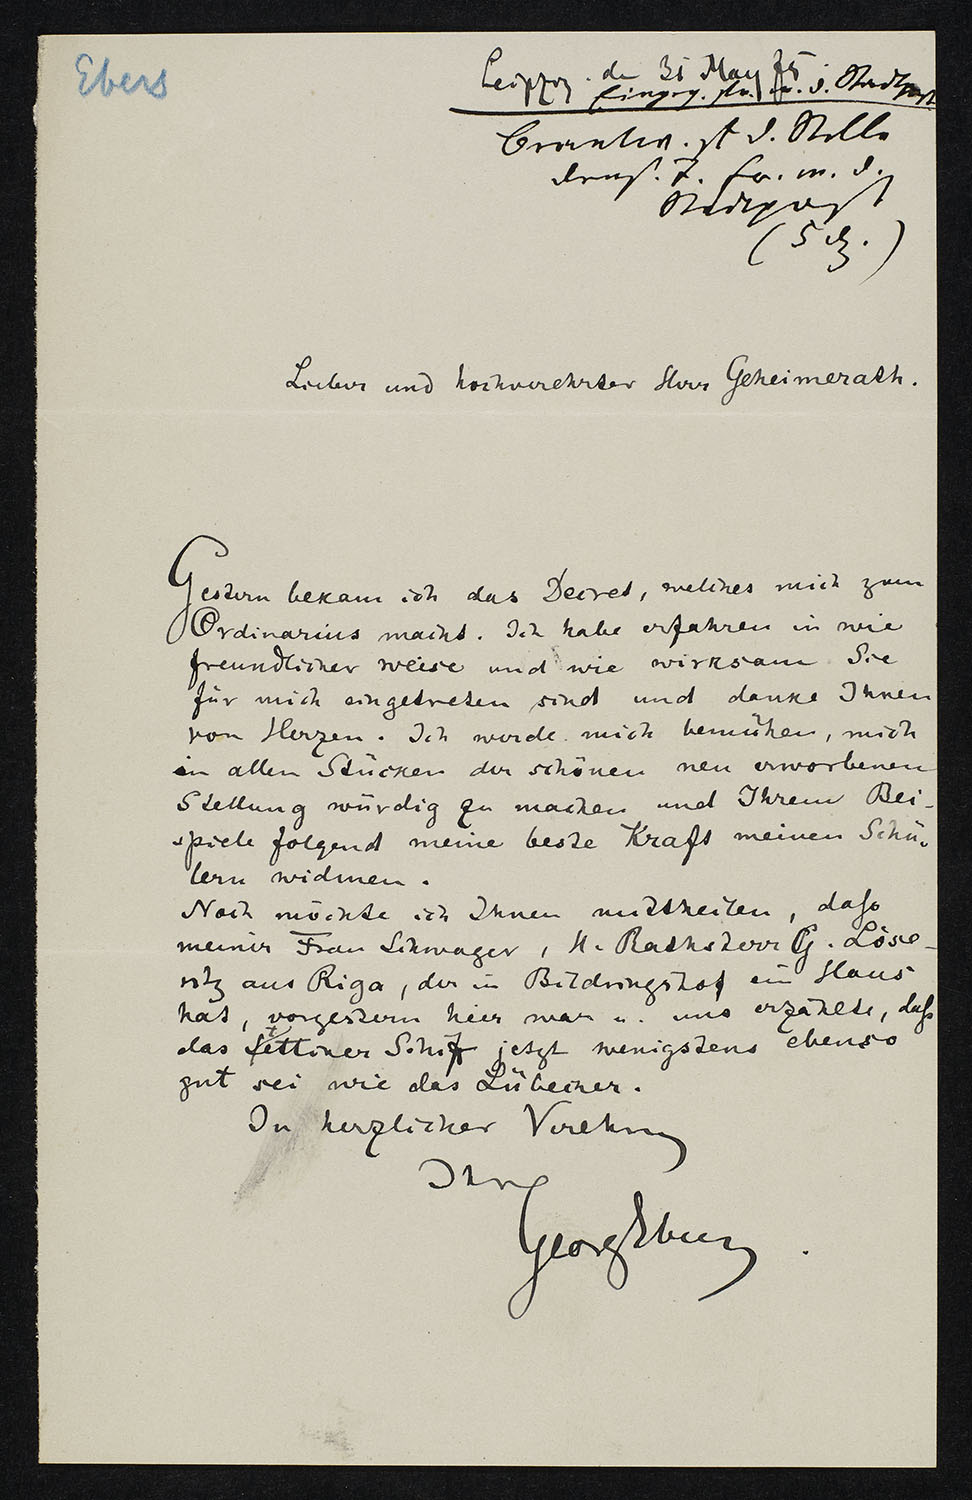 Ebers
Leipzig. d. 31 May 75
Eingeg. d. Stadtpost
Beantw. d. Stelle
Fr. m. d.
Stadtpost
(5 )
Lieber und hochverehrter Herr Geheimerath.
Gestern bekam ich das Decret, welches mich zum
Ordinarius macht. Ich habe erfahren in wie
freundlicher weise und wie wirksam Sie
für mich eingetreten sind und danke Ihnen
von Herzen. Ich werde mich bemühen, mich
in allen Stücken der schönen neu erworbenen
Stellung würdig zu machen und Ihrem Bei-
spiele folgend meine beste Kraft meinen Schü-
lern widmen.
Noch möchte ich Ihnen mittheilen, daſs
meiner Frau Schwager, H. Rathsherr G. Löse-
vitz aus Riga, der in Bildringshof ein Haus
hat, vorgestern hier war u. uns erzählte, daſs
das Stettiner Schiff jetzt wenigstens ebenso
gut sei wie das Lübecker.
In herzlicher Verehrung
Ihr
Georg Ebers.